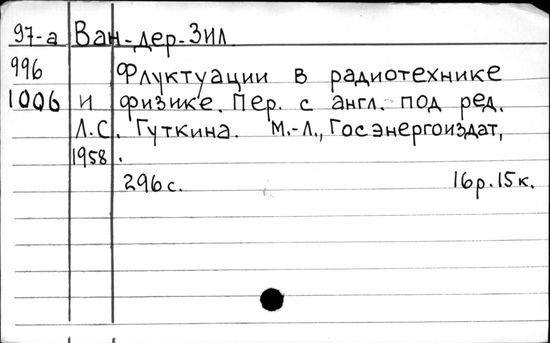 97-а Ван-дер-Зил
996 Флуктуации в радиотехнике
1006 и физике. Пер. с англ. под ред.
Л.С. Гуткина. М.-Л., Госэнергоиздат,
1958.
296с. 16р.15к.